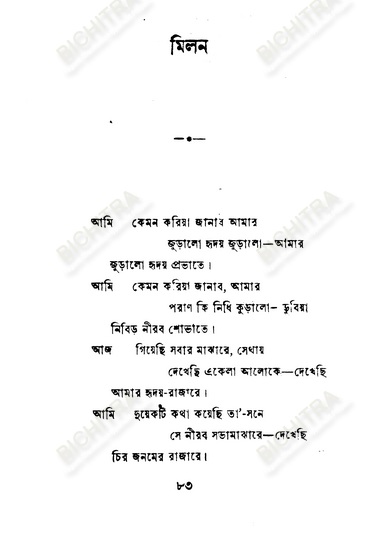 মিলন
আমি কেমন করিয়া জানাব আমার
জুড়ালো হৃদয় জুড়ালো—আমার
জুড়ালো হৃদয় প্রভাতে।
আমি কেমন করিয়া জানাব, আমার
পরাণ কি নিধি কুড়ালো– ডুবিয়া
নিবিড় নীরব শোভাতে।
আজ গিয়েছি সবার মাঝারে, সেথায়
দেখেছি একেলা আলোকে—দেখেছি
আমার হৃদয়-রাজারে।
আমি দুয়েকটি কথা কয়েছি তা'-সনে
সে নীরব সভামাঝারে—দেখেছি
চির জনমের রাজারে।
৮৩
BICHITRA
BICHITRA
BICHITRA
BICHITRA
BICHITRA
BICHITRA